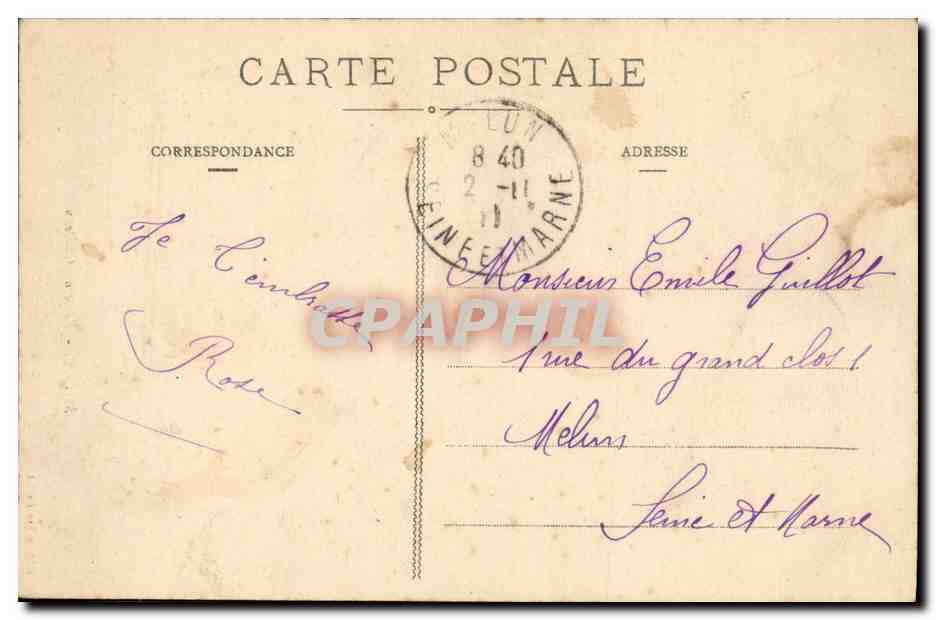 CARTE POSTALE
CORRESPONDANCE
ADRESSE
MELUN
8 40
2 -11
11
SEINE ET MARNE
Je t'embrasse
Rose
Monsieur Emile Guillot
1 rue du grand clos 1
Melun
Seine et Marne
CPAPHIL